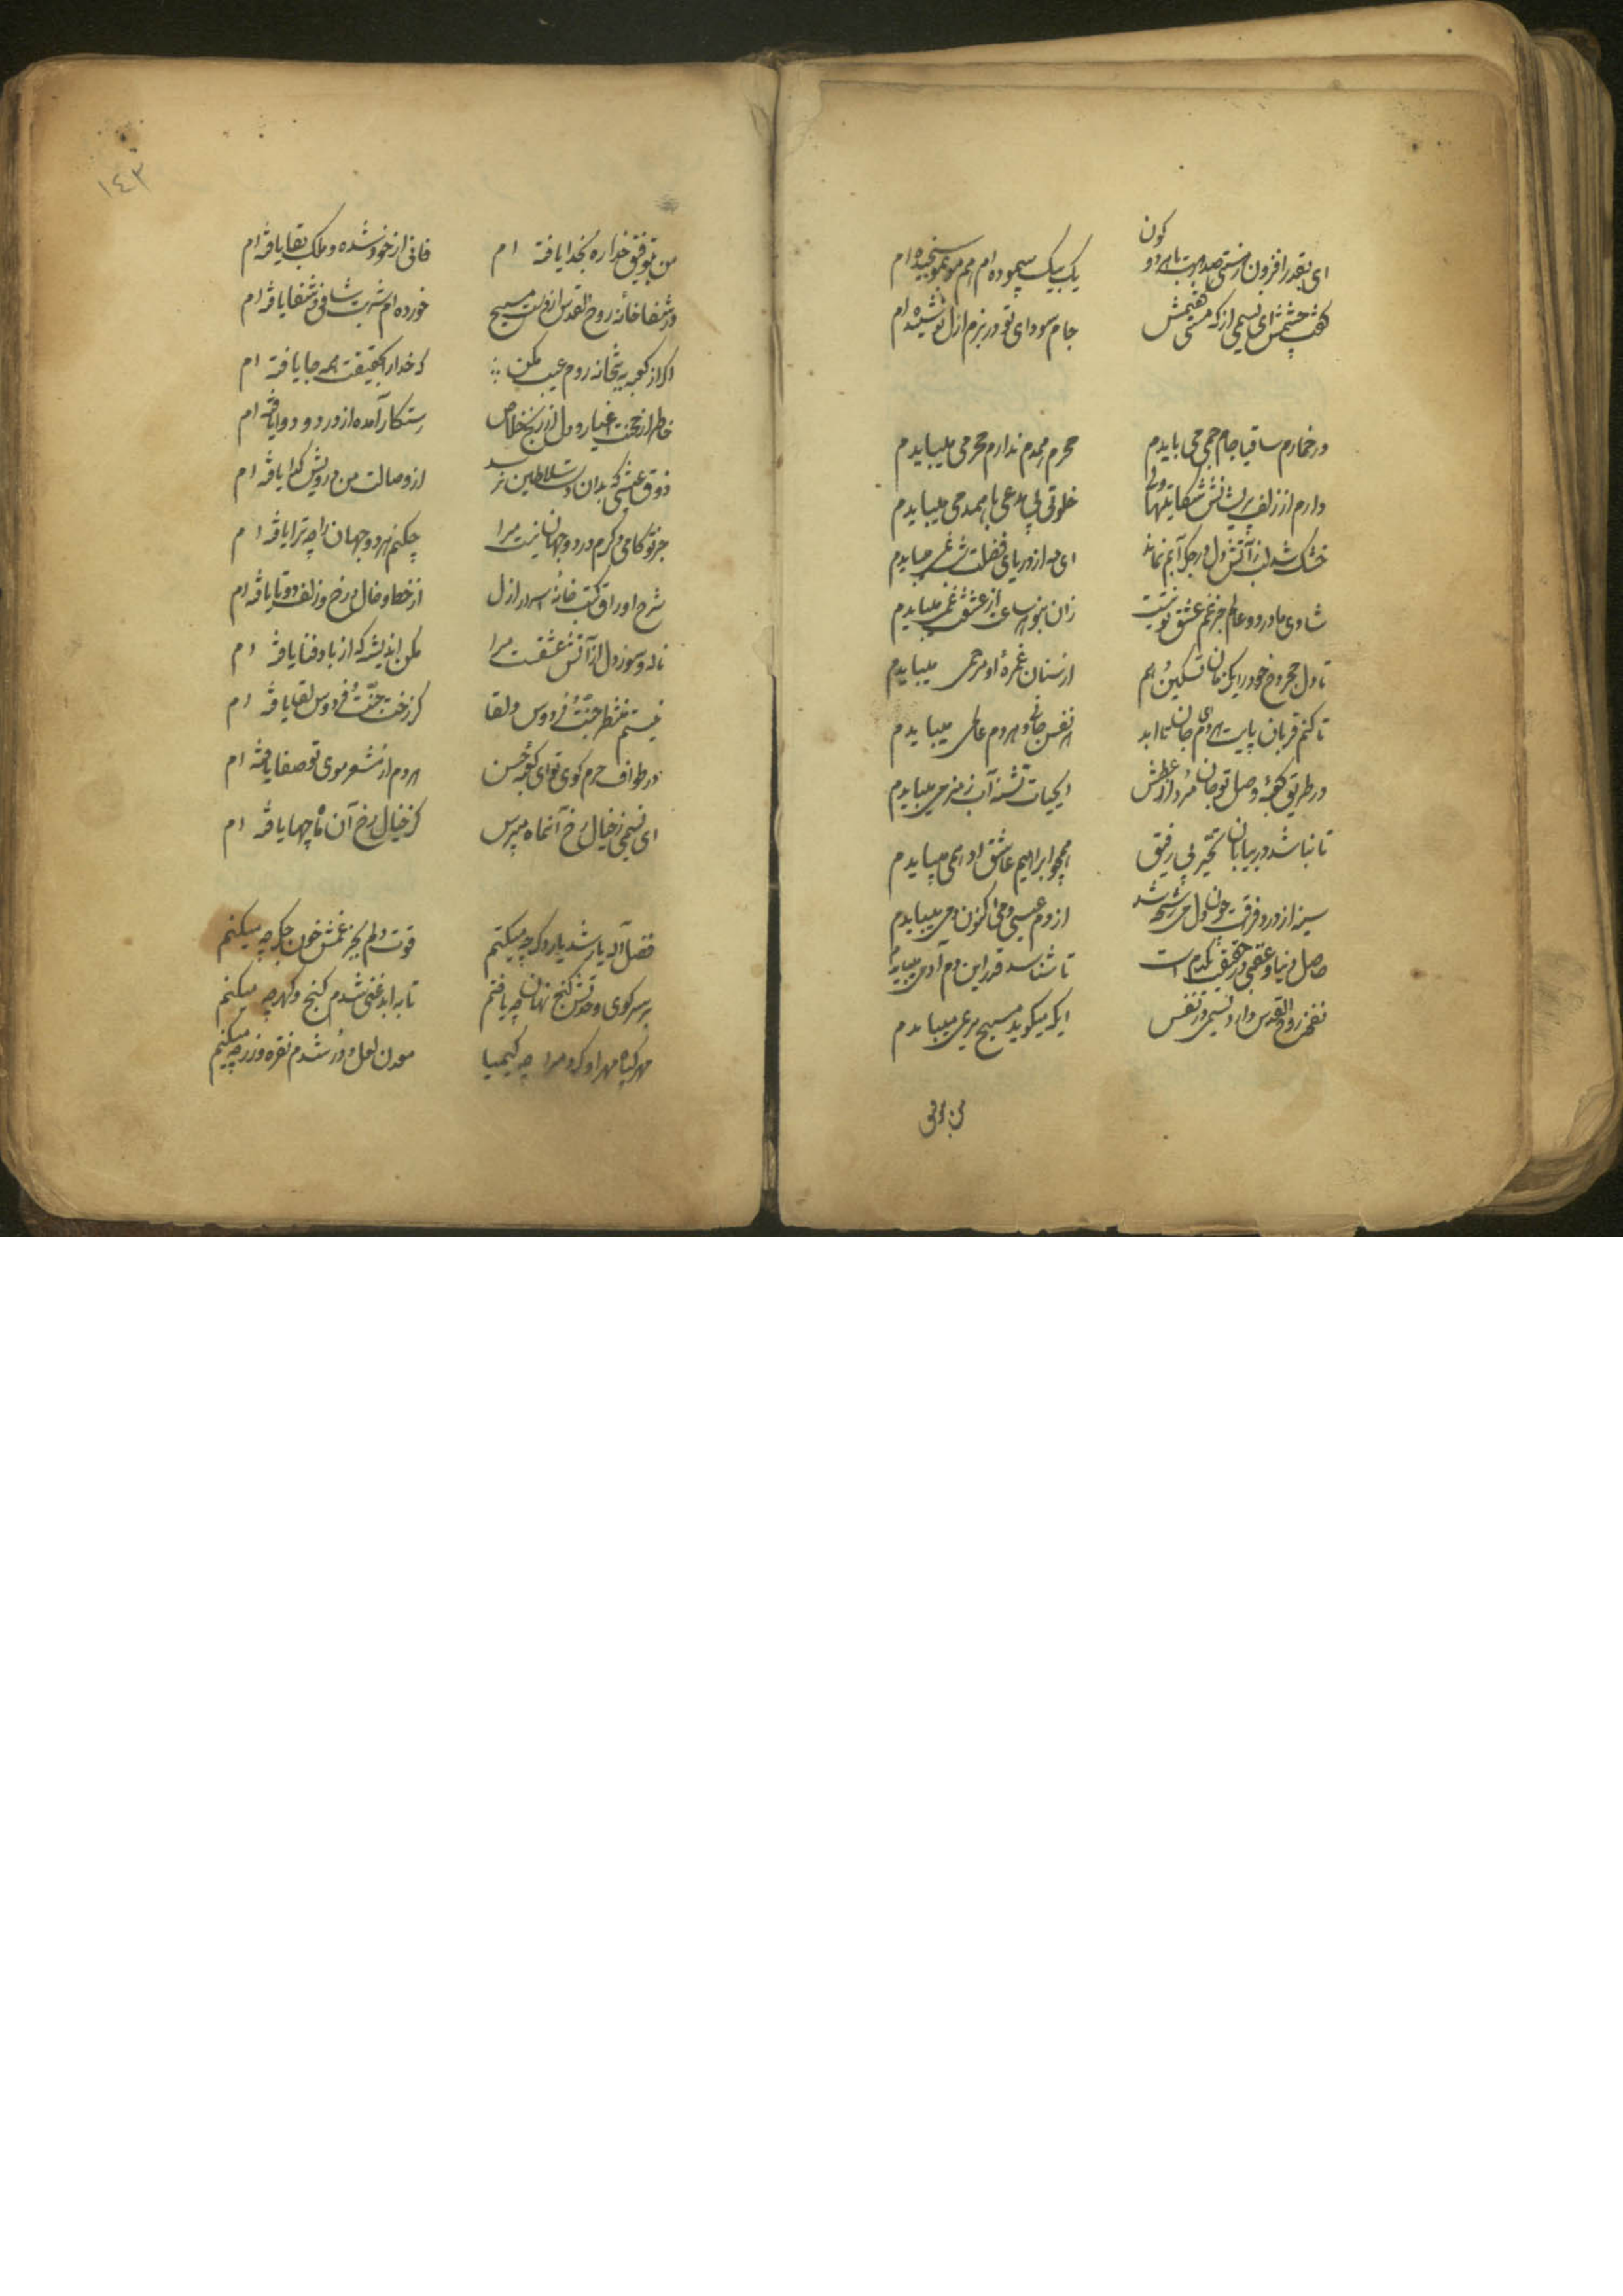 کون
ای بقدر افزون ز هستی صد مرتبت با هر دو
یک بیک پیموده ام هم مو بمو سنجیده ام
گفت چشمش ای نسیمی از که مستی گفتمش
جام سودای تو در بزم ازل نوشیده ام
در خمارم ساقیا جام جمی می بایدم
محرم همدم ندارم محرمی میبایدم
دارم از زلف پریشانش شکایتها ولی
خلوتی بی مدعی با همدمی میبایدم
خشک شد لب ز آتش دل در جگر آبم نماند
ای مه از دریای فضلت شبنمی میبایدم
شادی ما در دو عالم جز غم عشق تو نیست
زان بنو هر ساعت از عشقت غمی میبایدم
تا دل مجروح خود را یک زمان تسکین دهم
از سنان غمزه او مرهمی میبایدم
تا کنم قربان پایت هر دمی جان تا ابد
هر نفس جانی و هر دم عالمی میبایدم
در طریق کعبه وصل تو جان مرد از عطش
ایحیات تشنه آب زمزمی میبایدم
تا نباشد در بیابان تحیر بی رفیق
همچو ابراهیم عاشق ادهمی میبایدم
سینه از درد فراقت چون دل من ریش شد
از دم عیسی دمی اکنون دمی میبایدم
حاصل دنیا و عقبی در حقیقت یکدم است
تا شناسد قدر این دم آدمی میبایدم
نفخه روح القدس دارد نسیمی در نفس
ایکه میگوید مسیح مریمی میبایدم
من بتوفیق
١٤٣
من بتوفیق خدا ره بخدا یافته ام
فانی از خود شده و ملک بقا یافته ام
در شفاخانه روح القدس از دست مسیح
خورده ام شربت شافی و شفا یافته ام
اگر از کعبه به بتخانه روم عیب مکن
که خدا را بحقیقت همه جا یافته ام
خاطر از محنت اغیار و دل از رنج خلاص
رستکار آمده از درد و دوا یافته ام
ذوق عیشی که بدان دست سلاطین نرسد
از وصالت من درویش گدا یافته ام
جز تو کامی دگرم در دو جهان نیست مرا
چکنم هر دو جهان را چو ترا یافته ام
شرح اوراق کتب خانه اسرار ازل
از خط و خال و رخ و زلف دوتا یافته ام
ناله و سوز دل از آتش عشقت مرا
مکن اندیشه که از باد فنا یافته ام
نیستم منتظر جنت فردوس و لقا
کز رخت جنت فردوس لقا یافته ام
در طواف حرم کوی تو ای کعبه حسن
هر دم از مشعر موی تو صفا یافته ام
ای نسیمی ز خیال رخ آنماه مپرس
کز خیال رخ آن ماه چها یافته ام
فضل آله یار شد یار دگر چه میکنم
قوت دلم بجز غمش خون جگر چه میکنم
بر سر کوی وحدتش گنج نهان چو یافتم
تا به ابد غنی شدم گنج و گهر چه میکنم
مهر گیاه مهر او کرد مرا چو کیمیا
معدن لعل و در شدم نقره و زر چه میکنم